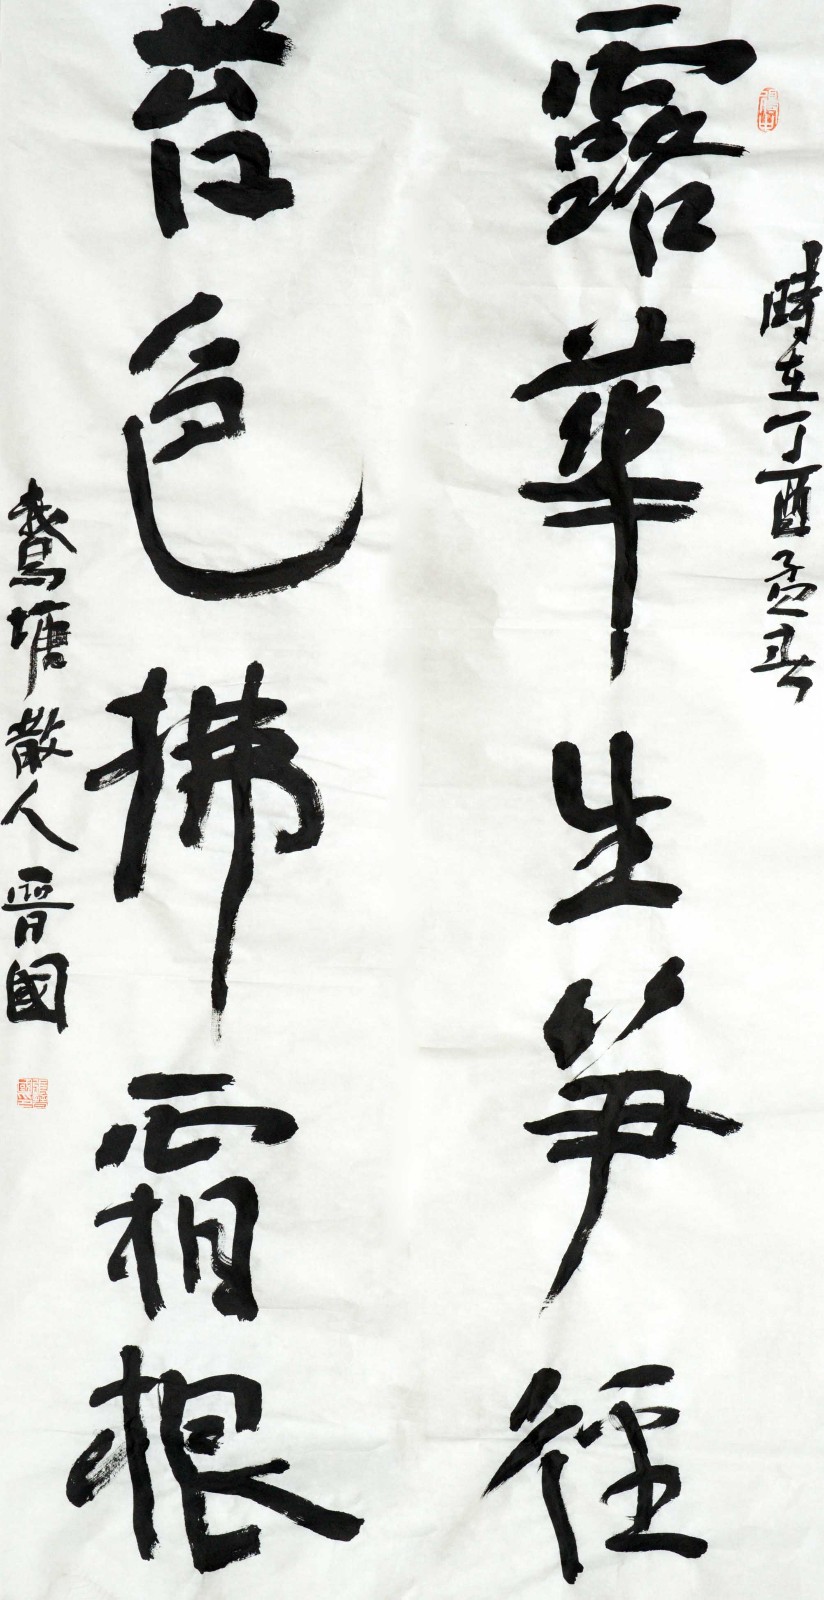 時在丁酉孟春
露華生笋徑
苔色拂霜根
鵞塘散人晉國